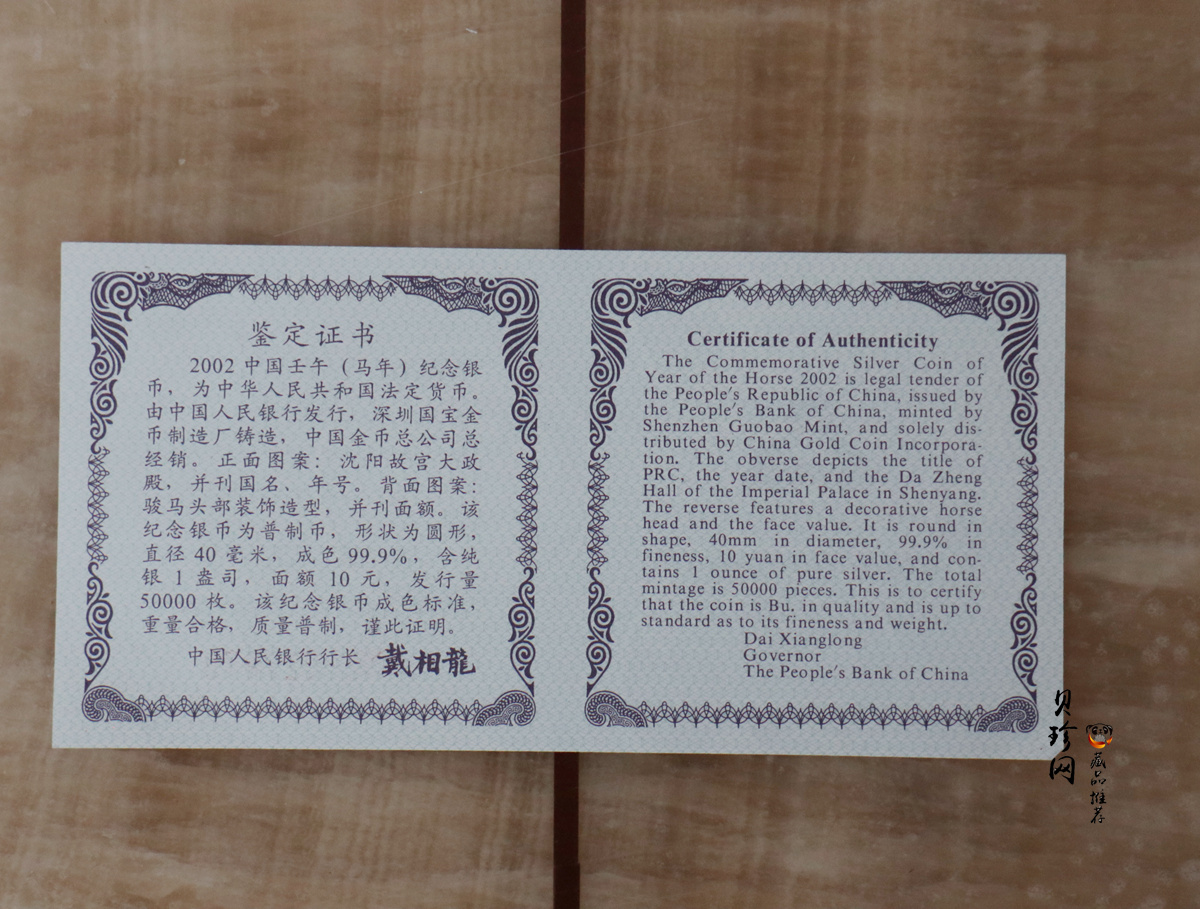 鉴定证书
2002 中国壬午（马年）纪念银
币，为中华人民共和国法定货币。
由中国人民银行发行，深圳国宝金
币制造厂铸造，中国金币总公司总
经销。正面图案：沈阳故宫大政
殿，并刊国名、年号。背面图案：
骏马头部装饰造型，并刊面额。该
纪念银币为普制币，形状为圆形，
直径 40 毫米，成色 99.9%，含纯
银 1 盎司，面额 10 元，发行量
50000 枚。该纪念银币成色标准，
重量合格，质量普制，谨此证明。
中国人民银行行长 戴相龍
Certificate of Authenticity
The Commemorative Silver Coin of
Year of the Horse 2002 is legal tender of
the People's Republic of China, issued by
the People's Bank of China, minted by
Shenzhen Guobao Mint, and solely dis-
tributed by China Gold Coin Incorpora-
tion. The obverse depicts the title of
PRC, the year date, and the Da Zheng
Hall of the Imperial Palace in Shenyang.
The reverse features a decorative horse
head and the face value. It is round in
shape, 40mm in diameter, 99.9% in
fineness, 10 yuan in face value, and con-
tains 1 ounce of pure silver. The total
mintage is 50000 pieces. This is to certify
that the coin is Bu. in quality and is up to
standard as to its fineness and weight.
Dai Xianglong
Governor
The People's Bank of China
贝珍网
藏品推荐